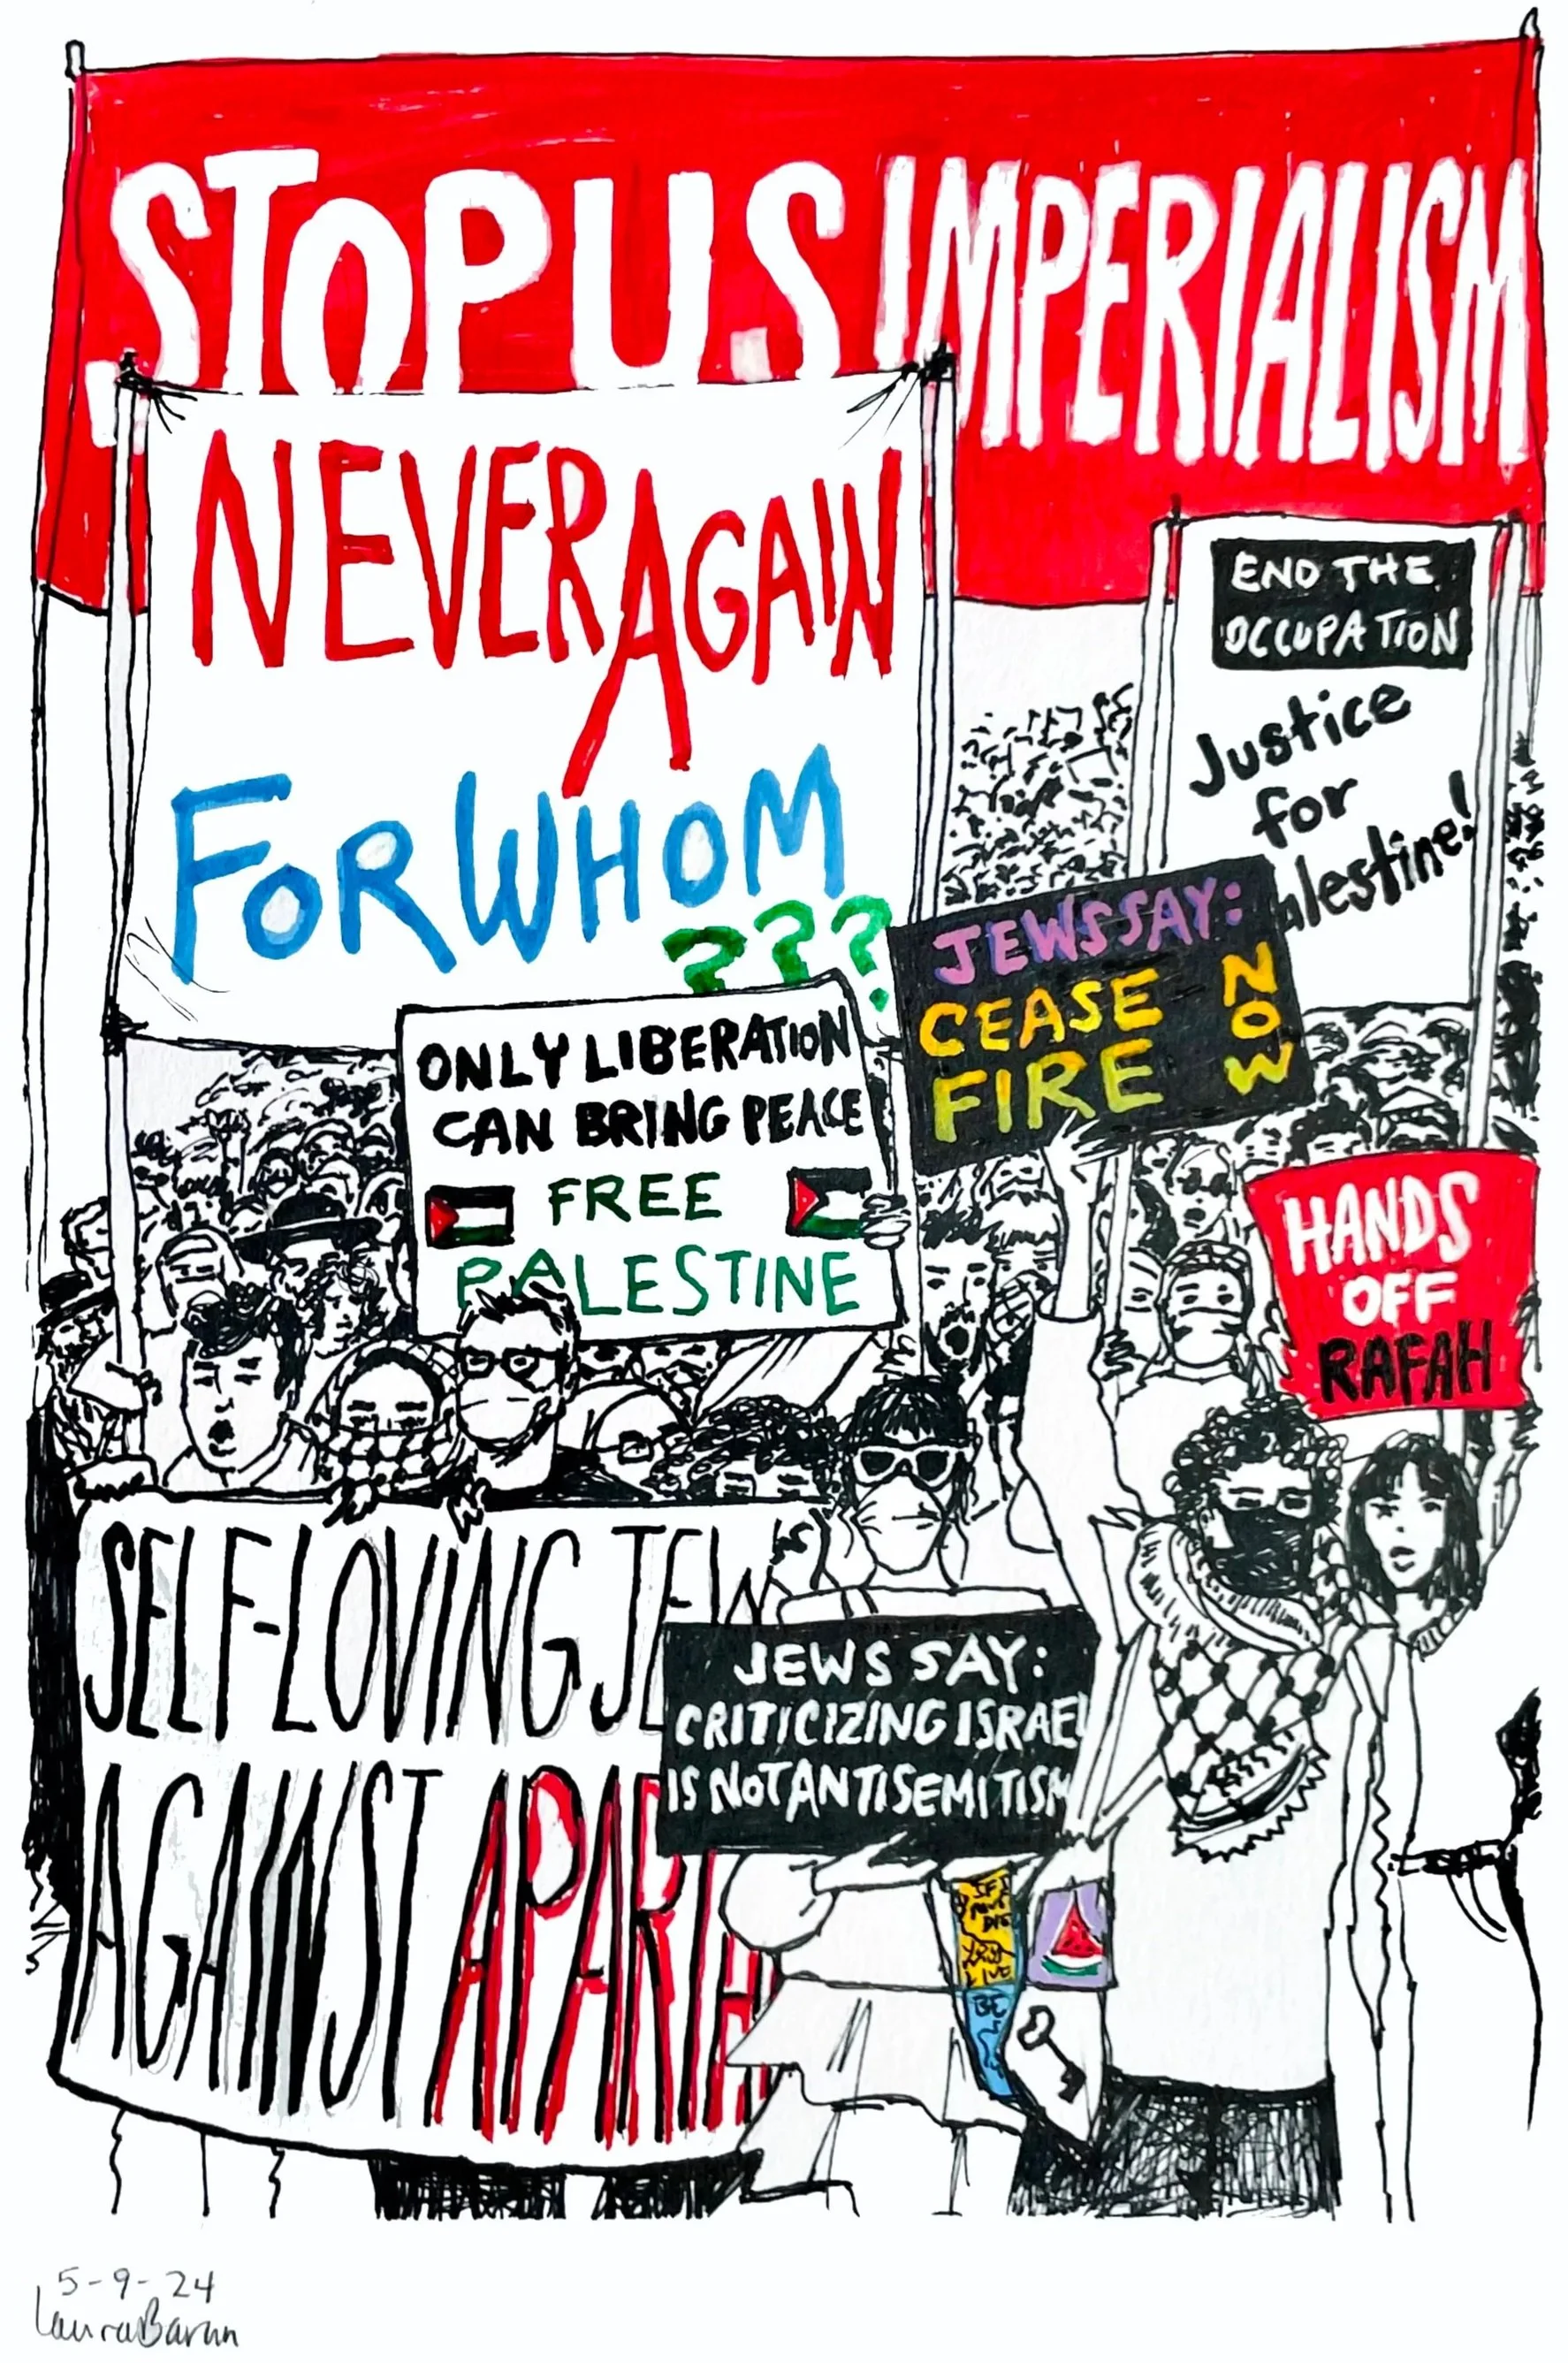 STOP U.S IMPERIALISM
NEVER AGAIN
FOR WHOM
???
END THE
OCCUPATION
Justice
for
alestine!
JEWS SAY:
CEASE
FIRE
NOW
ONLY LIBERATION
CAN BRING PEACE
FREE
PALESTINE
HANDS
OFF
RAFAH
SELF-LOVING JEWS
AGAINST APARTH
JEWS SAY:
CRITICIZING ISRAEL
IS NOT ANTISEMITISM
IF I
MUST
DIE
YOU
LIVE
5-9-24
Laura Barun